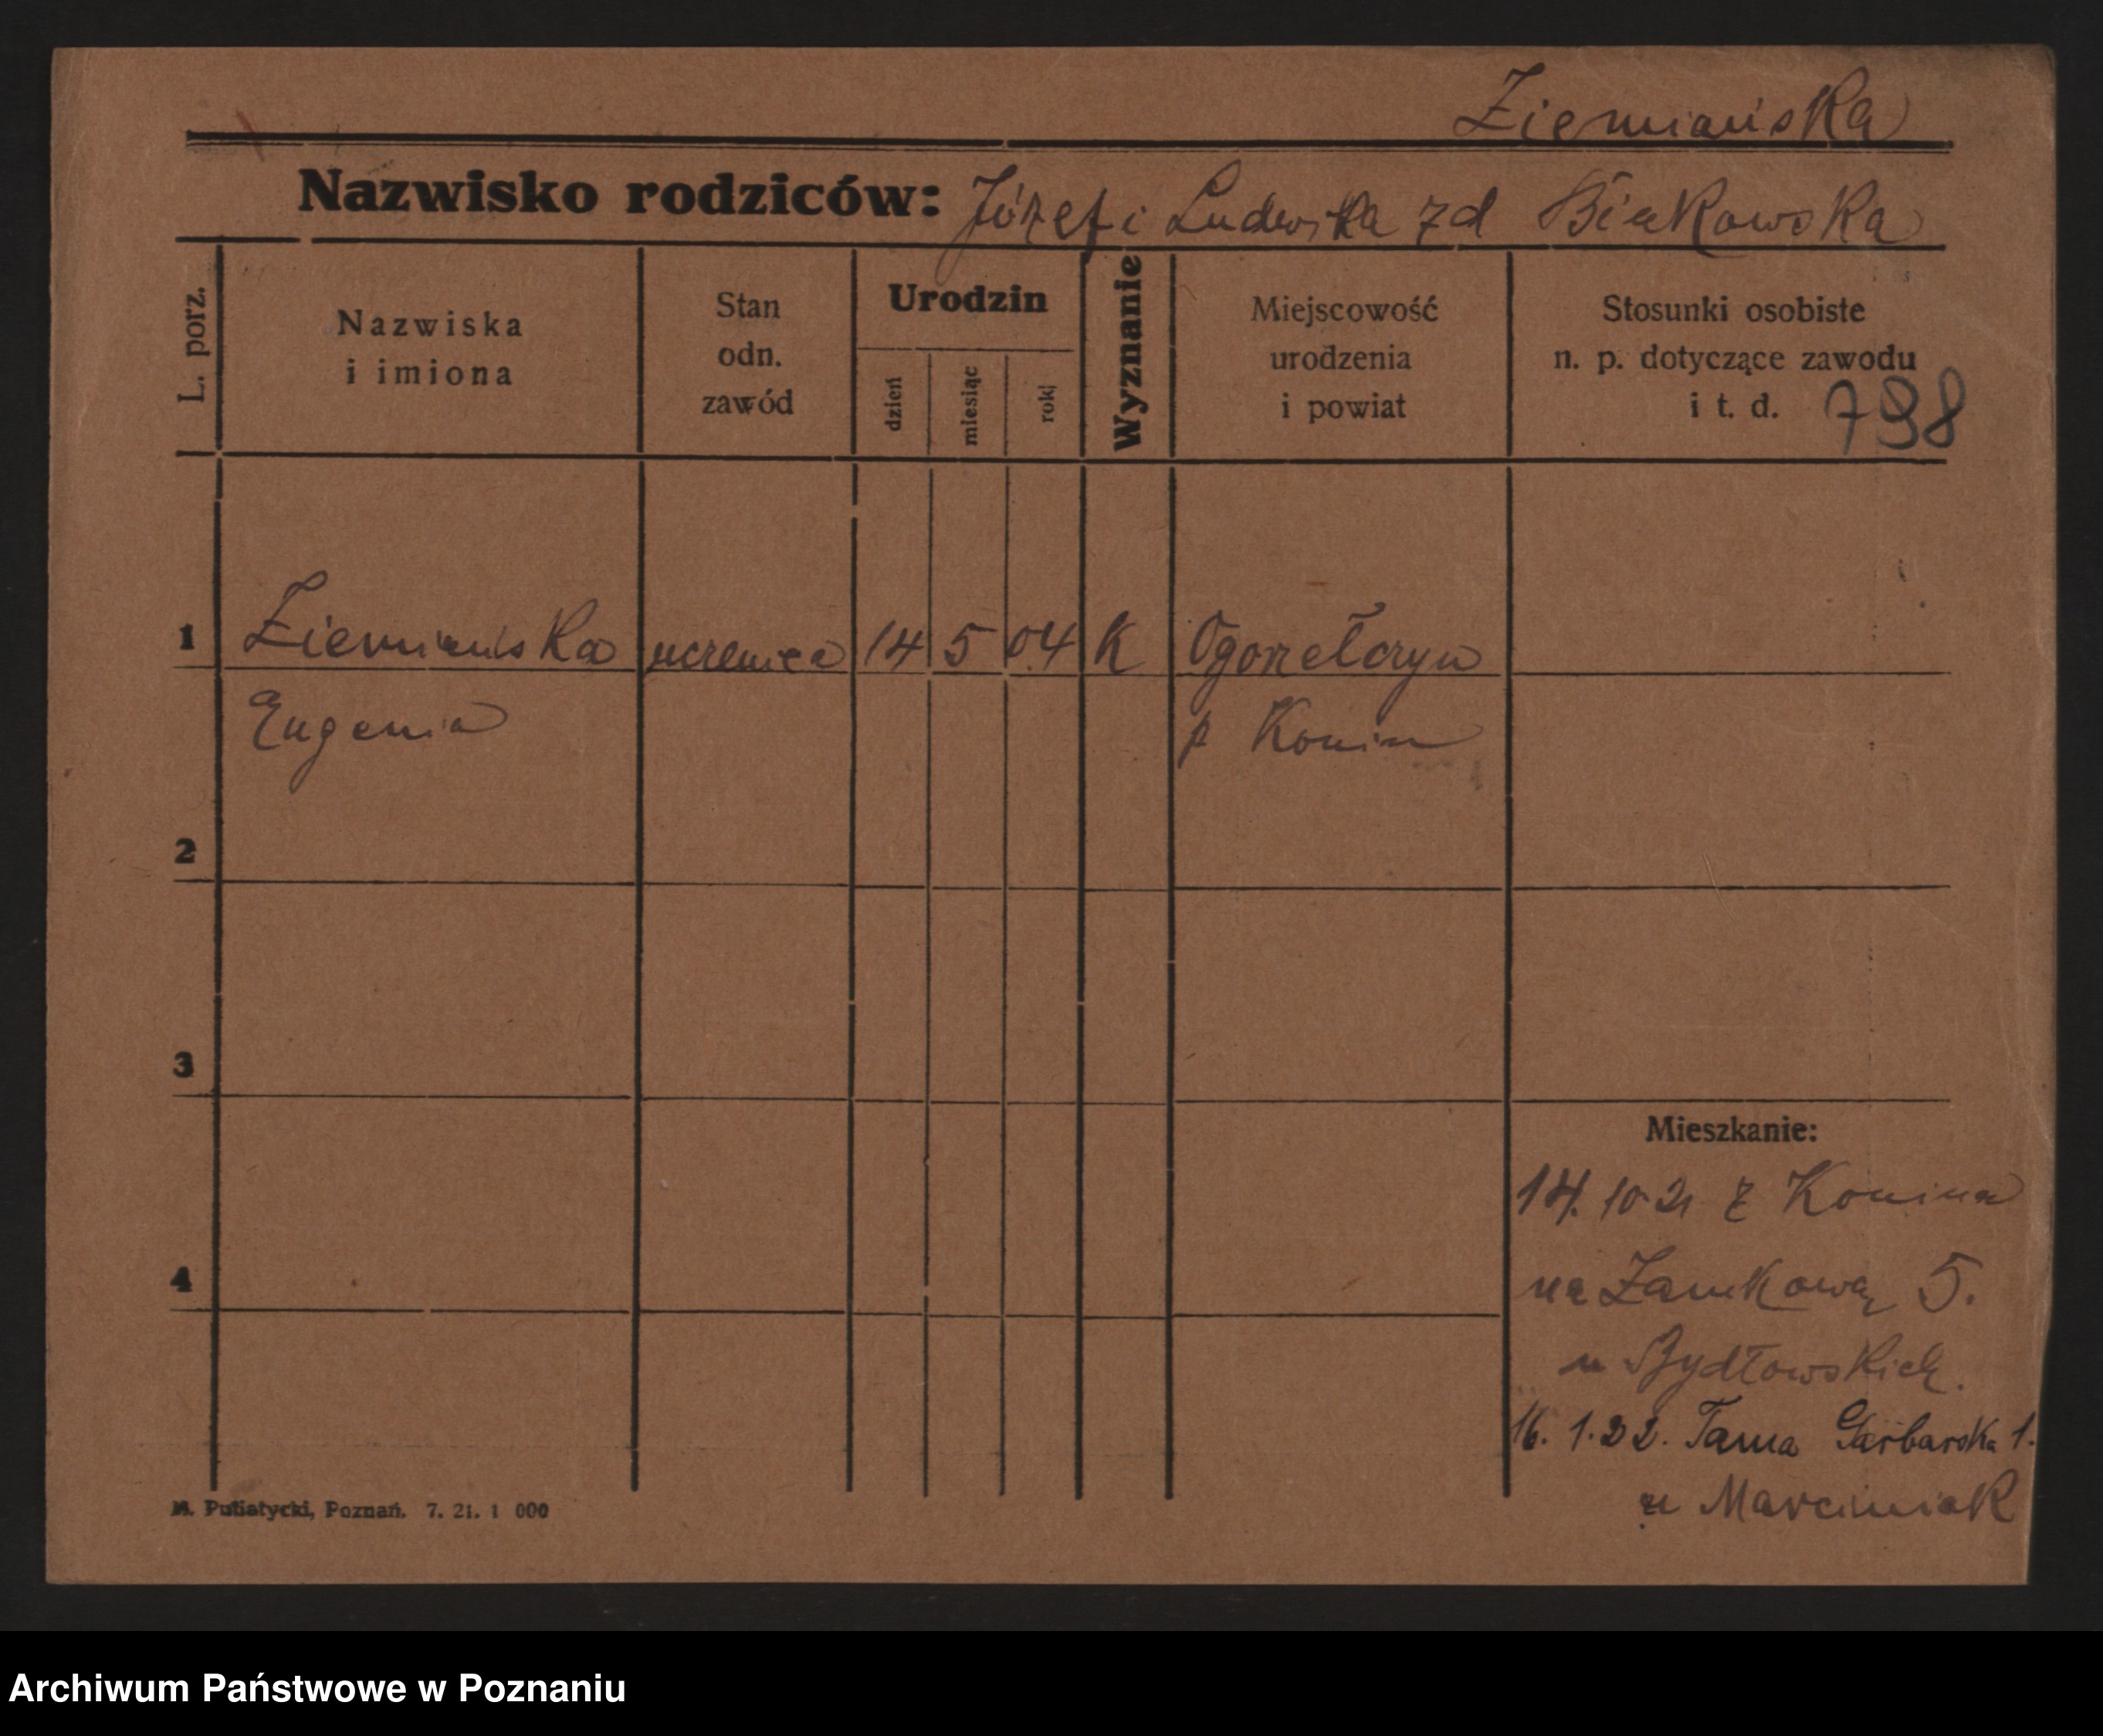 Ziemiańska
Nazwisko rodziców: Józef i Ludwika zd Biekowska
L. porz.
Nazwiska
i imiona
Stan
odn.
zawód
Urodzin
dzień
miesiąc
rok
Wyznanie
Miejscowość
urodzenia
i powiat
Stosunki osobiste
n. p. dotyczące zawodu
i t. d. 798
1 Ziemiańska uczenica 14 5 04 K
Eugenia p Konin
2
3
Mieszkanie:
14. 10 21 z Konina
4
na Zamkową 5.
u Szydłowskich.
16. 1. 22. Tama Garbarska 1.
u Marciniak
M. Putiatycki, Poznań. 7. 21. 1 000
Archiwum Państwowe w Poznaniu